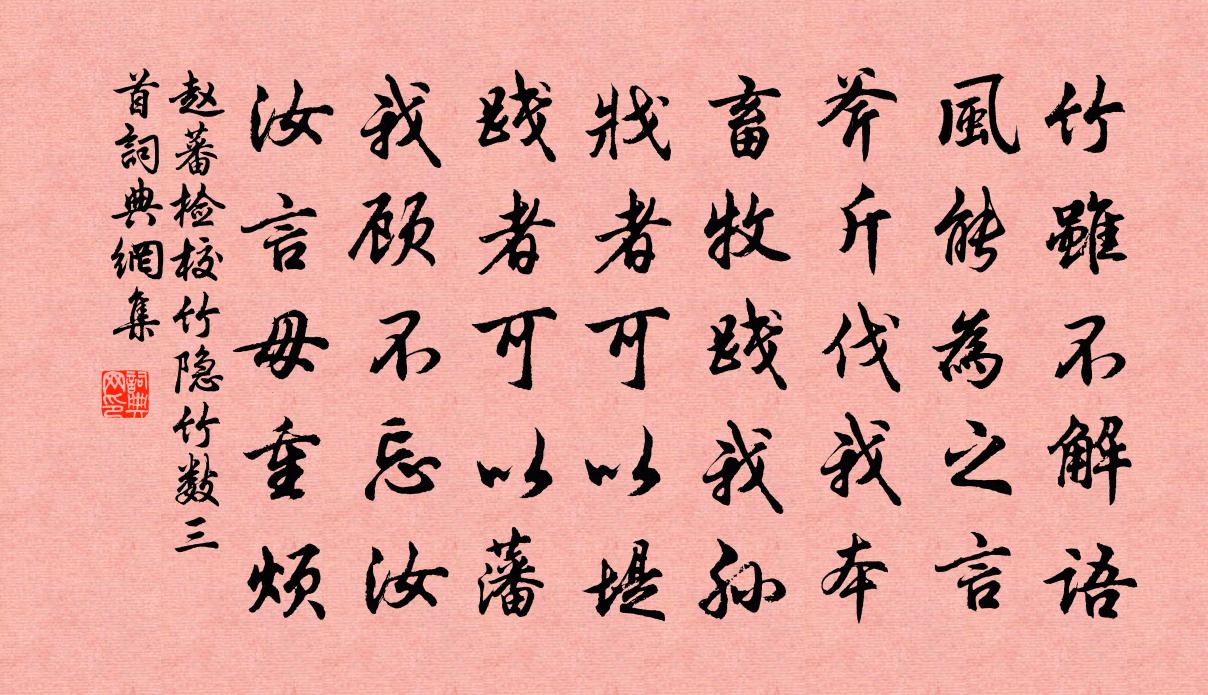 竹雖不解語
風能為之言
斧斤伐我本
畜牧踐我孙
戕者可以堤
踐者可以藩
我顾不忘汝
汝言毋重烦
赵蕃检校竹隐竹数三
首詞典網集
詞典
网印